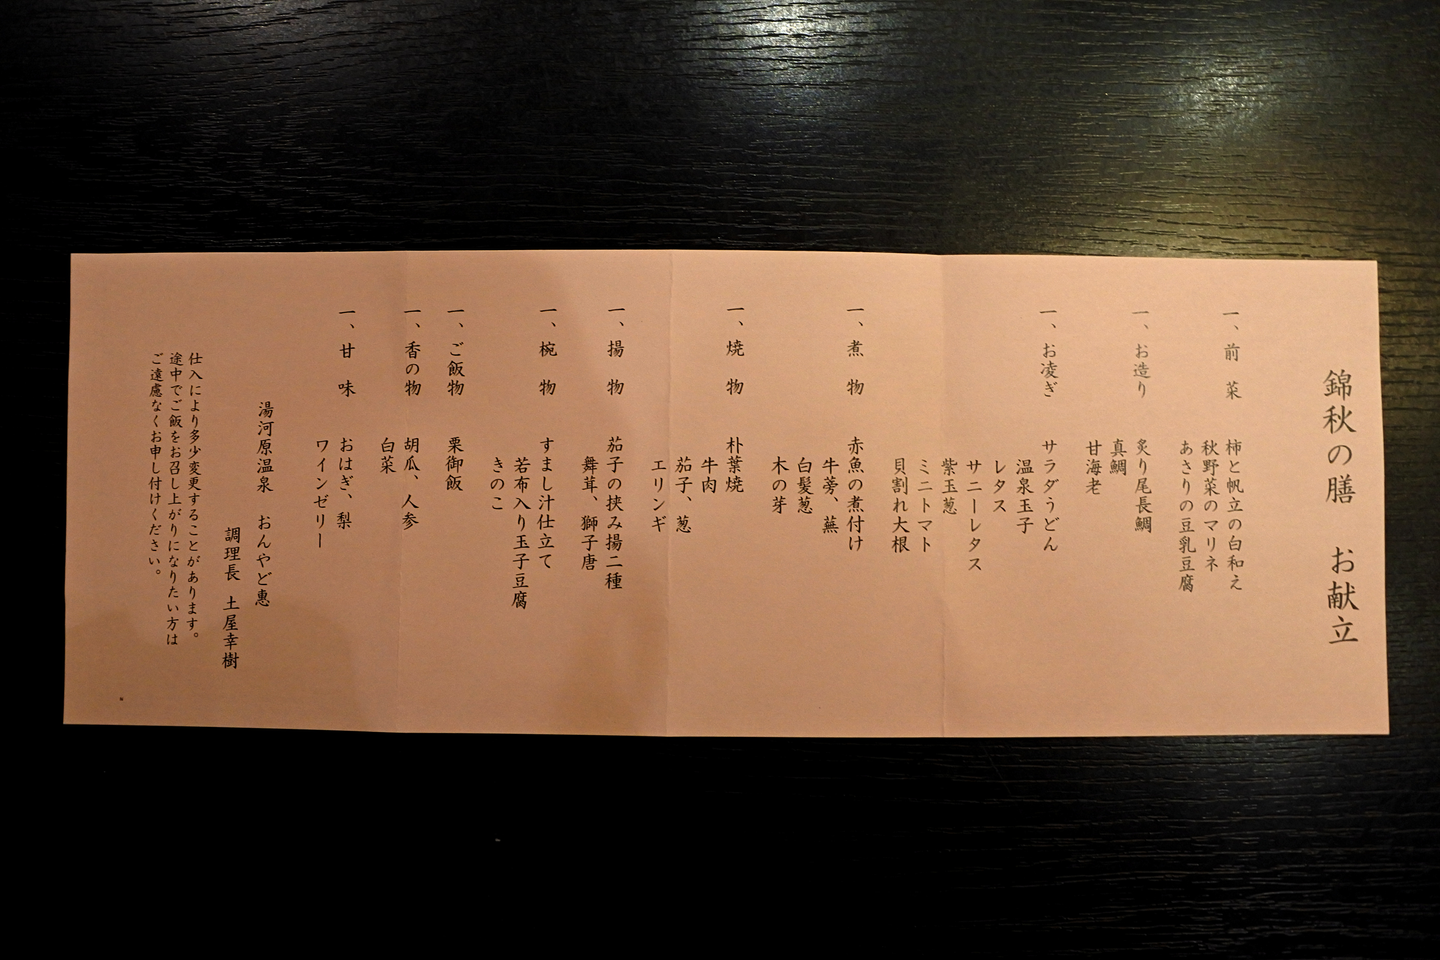 錦秋の膳　お献立
一、前　菜　柿と帆立の白和え
秋野菜のマリネ
あさりの豆乳豆腐
一、お造り　炙り尾長鯛
真鯛
甘海老
一、お凌ぎ　サラダうどん
温泉玉子
レタス
サニーレタス
紫玉葱
ミニトマト
貝割れ大根
一、煮　物　赤魚の煮付け
牛蒡、蕪
白髪葱
木の芽
一、焼　物　朴葉焼
牛肉
茄子、葱
エリンギ
一、揚　物　茄子の挟み揚二種
舞茸、獅子唐
一、椀　物　すまし汁仕立て
若布入り玉子豆腐
きのこ
一、ご飯物　栗御飯
一、香の物　胡瓜、人参
白菜
一、甘　味　おはぎ、梨
ワインゼリー
湯河原温泉　おんやど惠
調理長　土屋幸樹
仕入により多少変更することがあります。
途中でご飯をお召し上がりになりたい方は
ご遠慮なくお申し付けください。